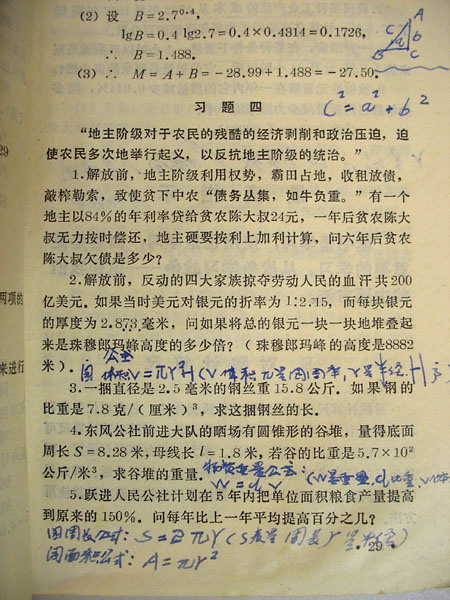 (2) 设 B=2.7⁰·⁴,
lgB=0.4 lg2.7=0.4×0.4314=0.1726,
∴ B=1.488.
(3) ∴ M=A+B=-28.99+1.488=-27.50.
A
C b
a
B C
C²=a²+b²
习 题 四
“地主阶级对于农民的残酷的经济剥削和政治压迫，迫
使农民多次地举行起义，以反抗地主阶级的统治。”
1.解放前，地主阶级利用权势，霸田占地，收租放债，
敲榨勒索，致使贫下中农“债务丛集，如牛负重。”有一个
地主以84%的年利率贷给贫农陈大叔24元，一年后贫农陈大
叔无力按时偿还，地主硬要按利上加利计算，问六年后贫农
陈大叔欠债是多少？
2.解放前，反动的四大家族掠夺劳动人民的血汗共200
亿美元。如果当时美元对银元的折率为1:2.15，而每块银元
的厚度为2.873毫米，问如果将总的银元一块一块地堆叠起
来是珠穆郎玛峰高度的多少倍？（珠穆郎玛峰的高度是8882
米）.
公式
V=πr²H (V体积 π是圆周率, r是半径. H
3.一捆直径是2.5毫米的钢丝重15.8公斤. 如果钢的
比重是7.8克/（厘米）³，求这捆钢丝的长.
4.东风公社前进大队的晒场有圆锥形的谷堆，量得底面
周长S=8.28米，母线长l=1.8米，若谷的比重是5.7×10²
公斤/米³，求谷堆的重量.
W=d.V
(W是重量, d比重, V体
5.跃进人民公社计划在5年内把单位面积粮食产量提高
到原来的150%. 问每年比上一年平均提高百分之几？
圆周长公式: S=2πr (S表是周长 r是半径)
圆面积公式: A=πr²
·29·
29
两项的
来进行